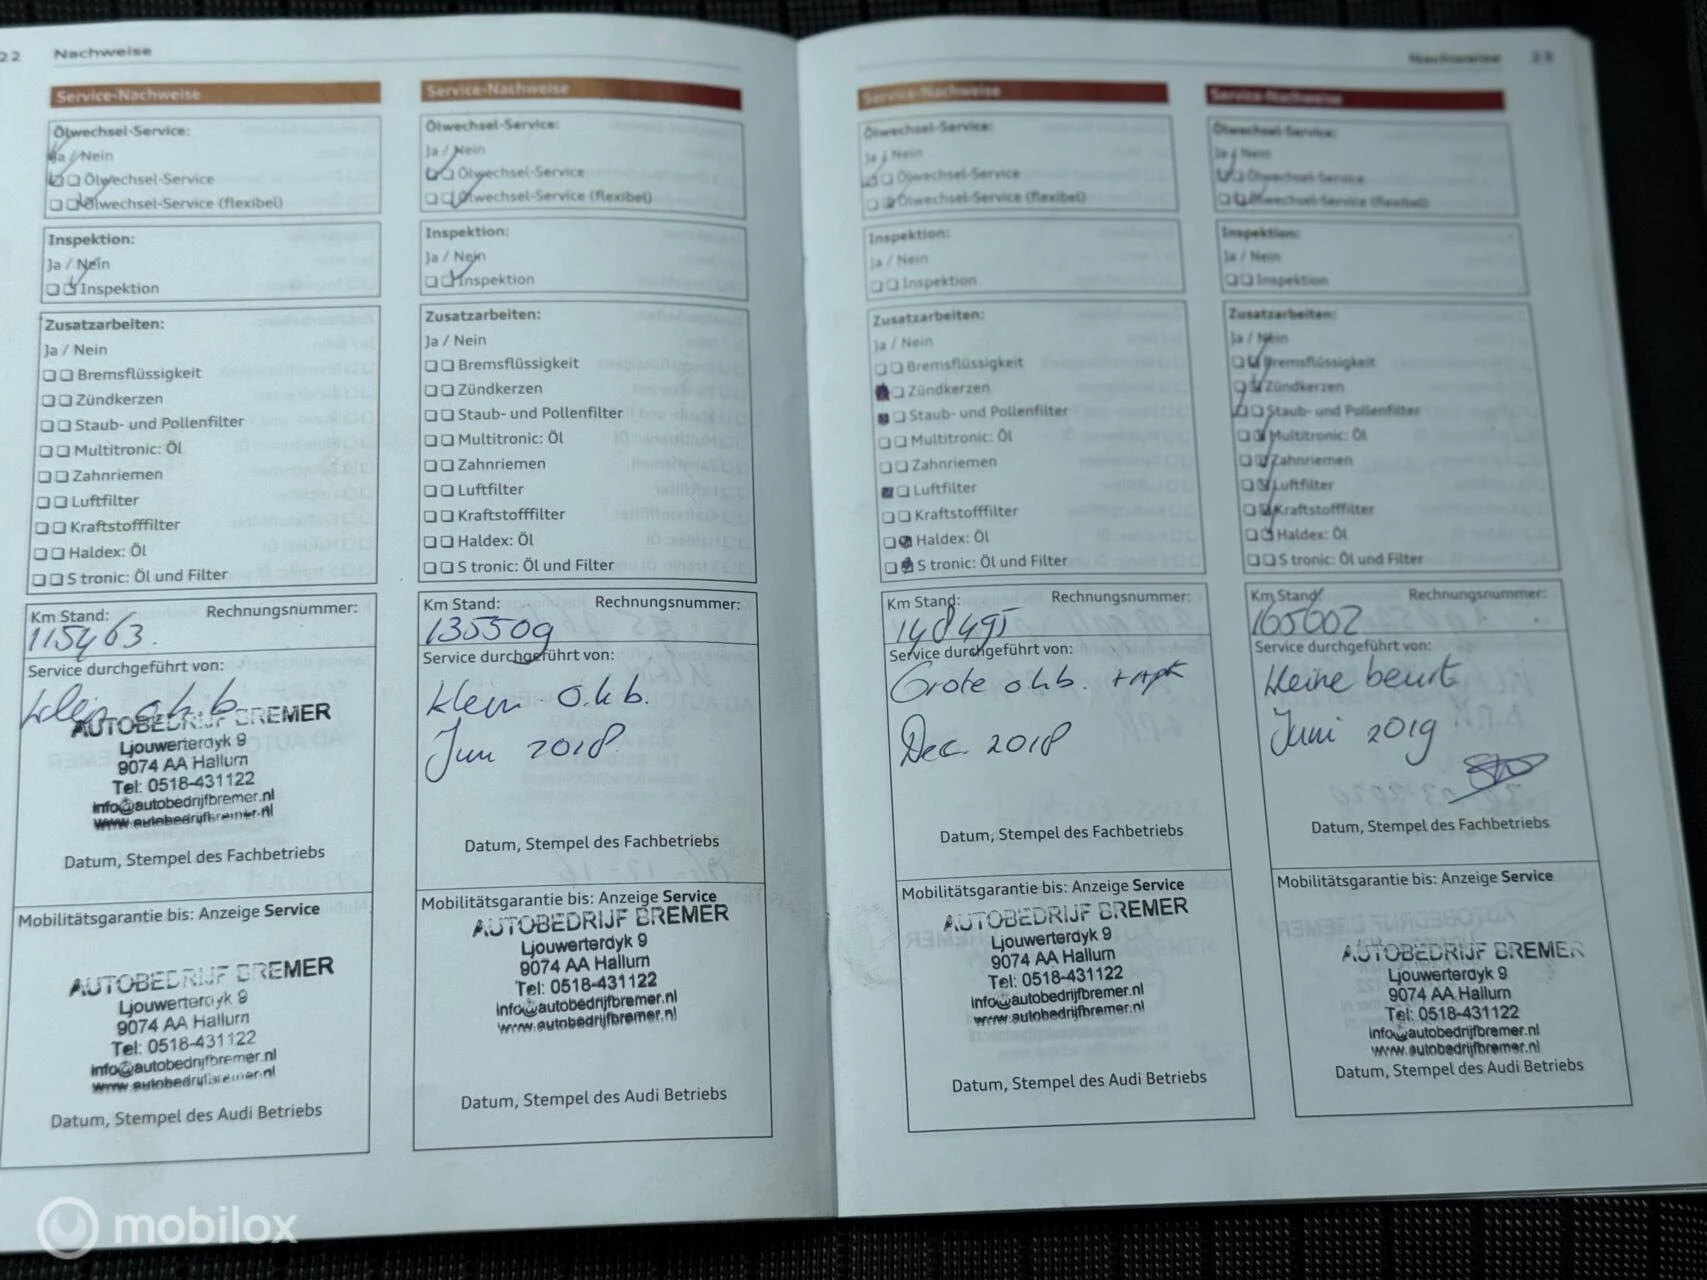 22 Nachweise
Service-Nachweise
Ölwechsel-Service:
Ja / Nein
Ölwechsel-Service
Ölwechsel-Service (flexibel)
Inspektion:
Ja / Nein
Inspektion
Zusatzarbeiten:
Ja / Nein
Bremsflüssigkeit
Zündkerzen
Staub- und Pollenfilter
Multitronic: Öl
Zahnriemen
Luftfilter
Kraftstofffilter
Haldex: Öl
S tronic: Öl und Filter
Km Stand: Rechnungsnummer:
115463.
Service durchgeführt von:
klein o.h.b.
AUTOBEDRIJF BREMER
Ljouwerterdyk 9
9074 AA Hallum
Tel: 0518-431122
info@autobedrijfbremer.nl
www.autobedrijfbremer.nl
Datum, Stempel des Fachbetriebs
Mobilitätsgarantie bis: Anzeige Service
AUTOBEDRIJF BREMER
Ljouwerterdyk 9
9074 AA Hallum
Tel: 0518-431122
info@autobedrijfbremer.nl
www.autobedrijfbremer.nl
Datum, Stempel des Audi Betriebs
Service-Nachweise
Ölwechsel-Service:
Ja / Nein
Ölwechsel-Service
Ölwechsel-Service (flexibel)
Inspektion:
Ja / Nein
Inspektion
Zusatzarbeiten:
Ja / Nein
Bremsflüssigkeit
Zündkerzen
Staub- und Pollenfilter
Multitronic: Öl
Zahnriemen
Luftfilter
Kraftstofffilter
Haldex: Öl
S tronic: Öl und Filter
Km Stand: Rechnungsnummer:
135509
Service durchgeführt von:
klein o.h.b.
Jun 2018
Datum, Stempel des Fachbetriebs
Mobilitätsgarantie bis: Anzeige Service
AUTOBEDRIJF BREMER
Ljouwerterdyk 9
9074 AA Hallum
Tel: 0518-431122
info@autobedrijfbremer.nl
www.autobedrijfbremer.nl
Datum, Stempel des Audi Betriebs
Nachweise 23
Service-Nachweise
Ölwechsel-Service:
Ja / Nein
Ölwechsel-Service
Ölwechsel-Service (flexibel)
Inspektion:
Ja / Nein
Inspektion
Zusatzarbeiten:
Ja / Nein
Bremsflüssigkeit
Zündkerzen
Staub- und Pollenfilter
Multitronic: Öl
Zahnriemen
Luftfilter
Kraftstofffilter
Haldex: Öl
S tronic: Öl und Filter
Km Stand: Rechnungsnummer:
148495
Service durchgeführt von:
Grote o.h.b.
Dec. 2018
Datum, Stempel des Fachbetriebs
Mobilitätsgarantie bis: Anzeige Service
AUTOBEDRIJF BREMER
Ljouwerterdyk 9
9074 AA Hallum
Tel: 0518-431122
info@autobedrijfbremer.nl
www.autobedrijfbremer.nl
Datum, Stempel des Audi Betriebs
Service-Nachweise
Ölwechsel-Service:
Ja / Nein
Ölwechsel-Service
Ölwechsel-Service (flexibel)
Inspektion:
Ja / Nein
Inspektion
Zusatzarbeiten:
Ja / Nein
Bremsflüssigkeit
Zündkerzen
Staub- und Pollenfilter
Multitronic: Öl
Zahnriemen
Luftfilter
Kraftstofffilter
Haldex: Öl
S tronic: Öl und Filter
Km Stand: Rechnungsnummer:
165602
Service durchgeführt von:
kleine beurt
Juni 2019
Datum, Stempel des Fachbetriebs
Mobilitätsgarantie bis: Anzeige Service
AUTOBEDRIJF BREMER
Ljouwerterdyk 9
9074 AA Hallum
Tel: 0518-431122
info@autobedrijfbremer.nl
www.autobedrijfbremer.nl
Datum, Stempel des Audi Betriebs
mobilox